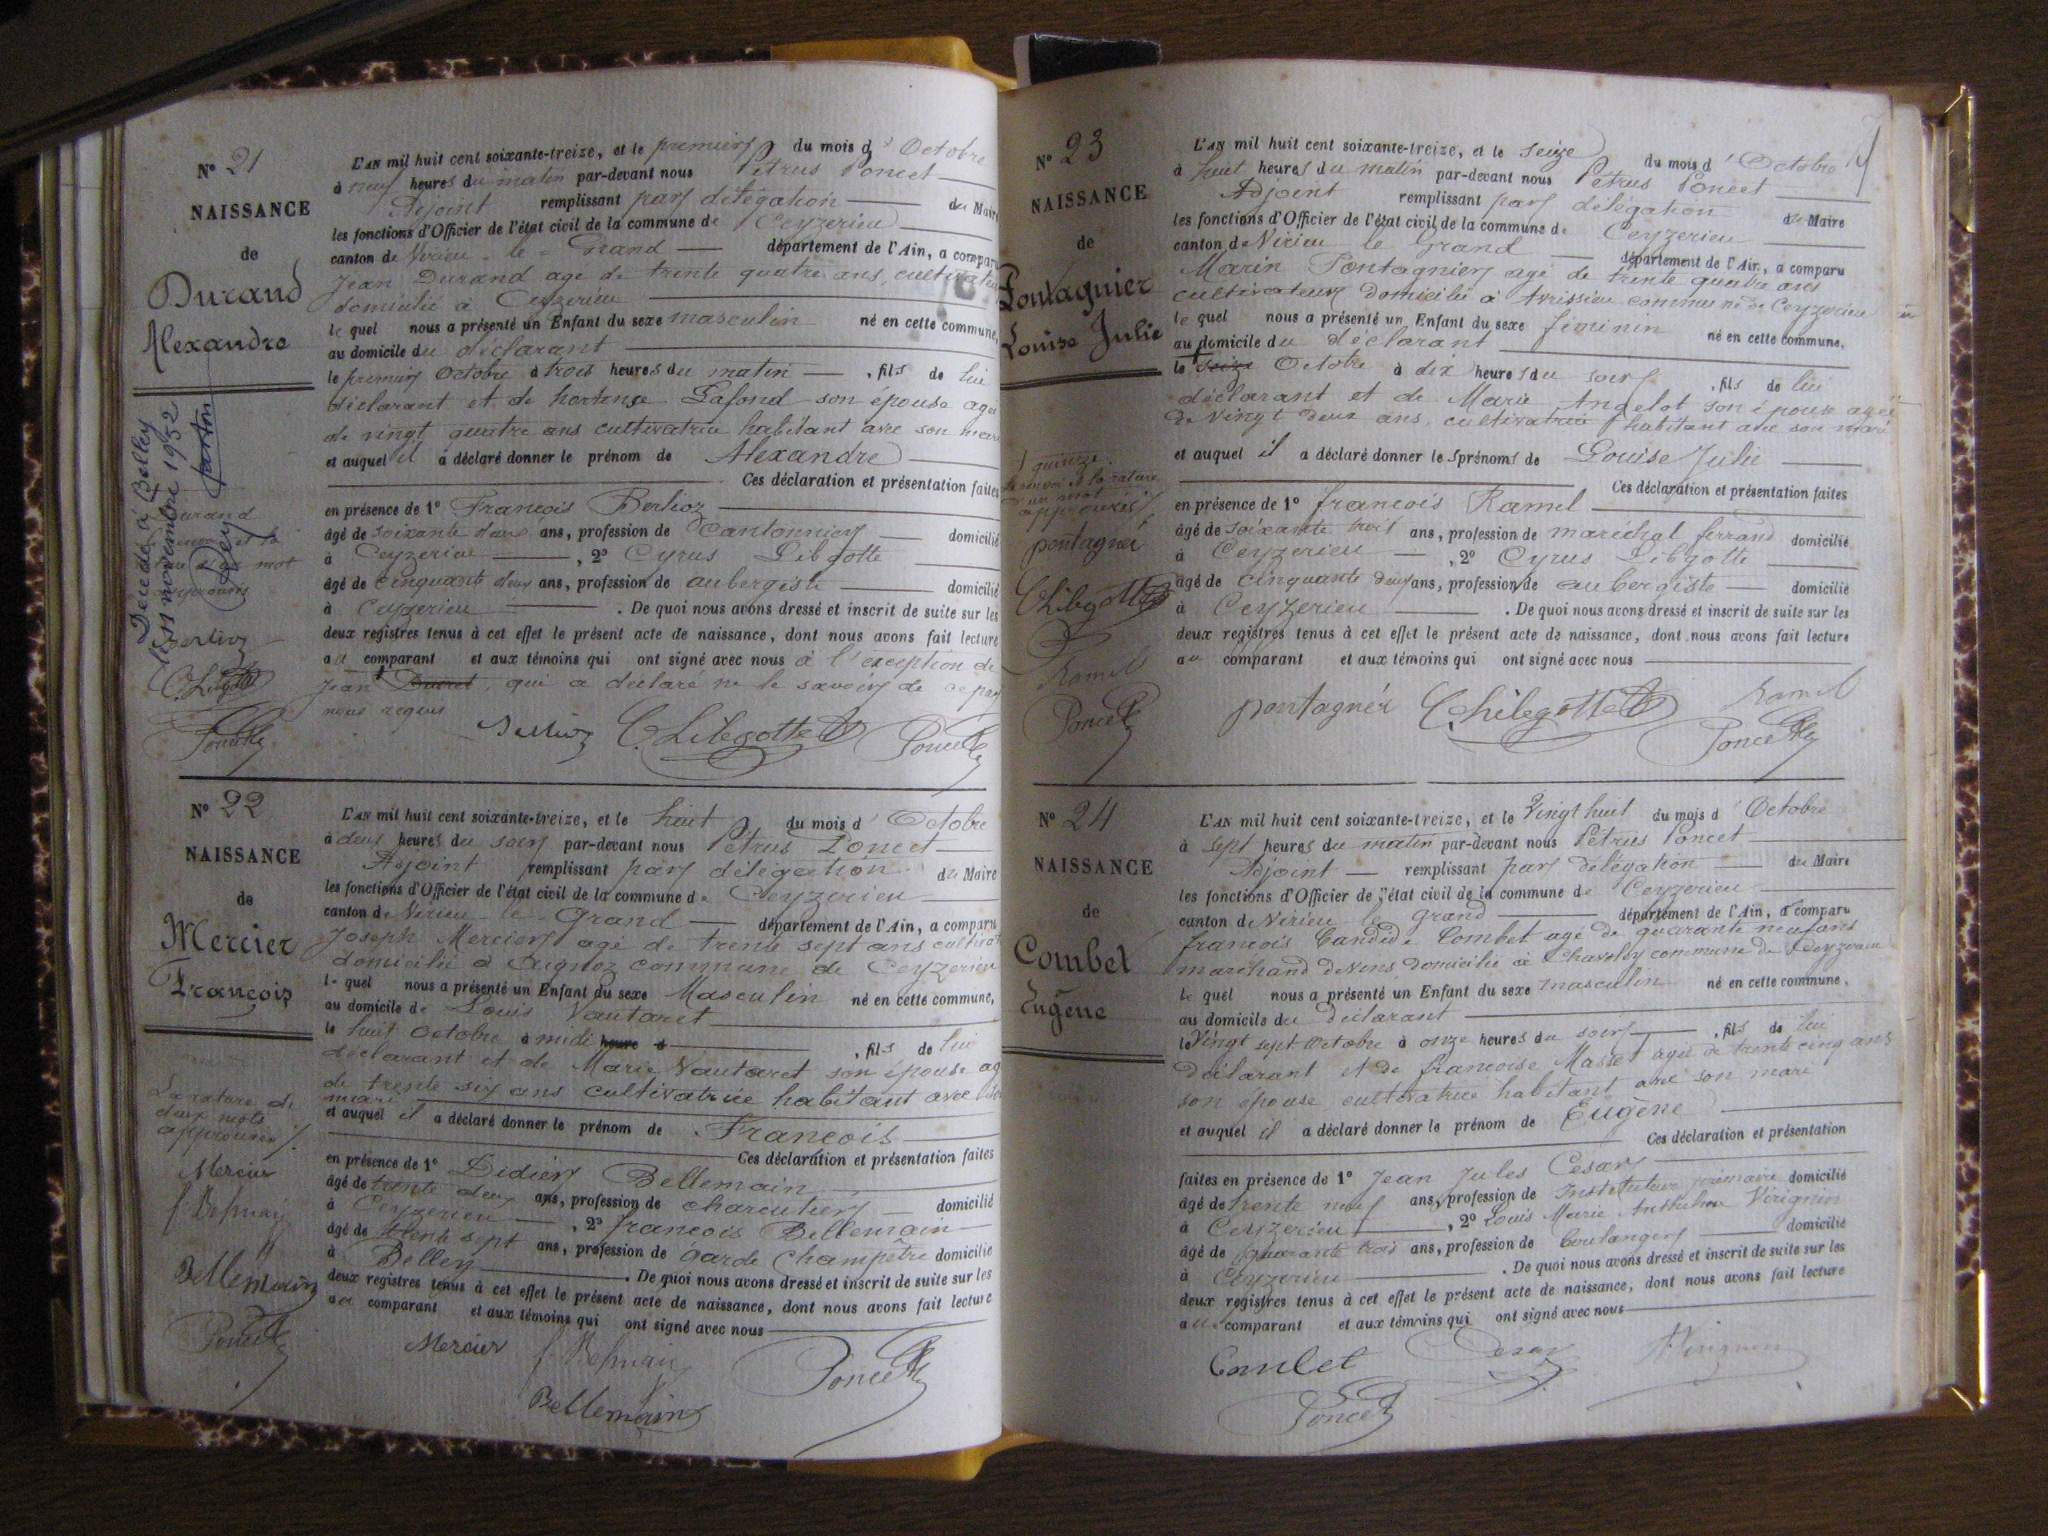 N° 21
NAISSANCE
de
Durand
Alexandre
Décédé à Belley
le 11 novembre 1952
L'AN mil huit cent soixante-treize, et le premier du mois d'Octobre
à neuf heures du matin par-devant nous Pétrus Poncet
Adjoint remplissant par délégation du Maire
les fonctions d'Officier de l'état civil de la commune de Ceyzerieu
canton de Virieu-le-Grand département de l'Ain, a comparu
Jean Durand agé de trente quatre ans, cultivateur
domicilié à Ceyzerieu
le quel nous a présenté un Enfant du sexe masculin né en cette commune,
au domicile du déclarant
le premier Octobre à trois heures du matin, fils de lui
déclarant et de hortense Lafond son épouse agée
de vingt quatre ans cultivatrice habitant avec son mari
et auquel il a déclaré donner le prénom de Alexandre
Ces déclaration et présentation faites
en présence de 1° François Berlioz
âgé de soixante deux ans, profession de Cantonnier domicilié
à Ceyzerieu, 2° Cyrus Libgotte
âgé de cinquante deux ans, profession de aubergiste domicilié
à Ceyzerieu. De quoi nous avons dressé et inscrit de suite sur les
deux registres tenus à cet effet le présent acte de naissance, dont nous avons fait lecture
au comparant et aux témoins qui ont signé avec nous à l'exception de
Jean Ducret, qui a déclaré ne le savoir de ce par
nous requis
Berlioz C Libgotte Poncet
N° 22
NAISSANCE
de
Mercier
François
La rature de
deux mots
approuvée
Mercier
Bellemain
Poncet
L'AN mil huit cent soixante-treize, et le huit du mois d'Octobre
à deux heures du soir par-devant nous Pétrus Poncet
Adjoint remplissant par délégation du Maire
les fonctions d'Officier de l'état civil de la commune de Ceyzerieu
canton de Virieu-le-Grand département de l'Ain, a comparu
Joseph Mercier agé de trente sept ans cultivat
domicilié à Aignoz commune de Ceyzerieu
le quel nous a présenté un Enfant du sexe Masculin né en cette commune,
au domicile de Louis Vautaret
le huit Octobre à midi heure d, fils de lui
déclarant et de Marie Vautaret son épouse ag
de trente six ans cultivatrice habitant avec son
mari
et auquel il a déclaré donner le prénom de François
Ces déclaration et présentation faites
en présence de 1° Didier Bellemain
âgé de trente deux ans, profession de charcutier domicilié
à Ceyzerieu, 2° francois Bellemain
âgé de trente sept ans, profession de Garde Champêtre domicilié
à Belley. De quoi nous avons dressé et inscrit de suite sur les
deux registres tenus à cet effet le présent acte de naissance, dont nous avons fait lecture
au comparant et aux témoins qui ont signé avec nous
Mercier
Bellemain Poncet
N° 23
NAISSANCE
de
Pontagnier
Louise Julie
quinze
Le renvoi et la rature
d'un mot
approuvés
pontagnier
C Libgotte
Ramel
Poncet
L'AN mil huit cent soixante-treize, et le seize du mois d'Octobre
à huit heures du matin par-devant nous Pétrus Poncet
Adjoint remplissant par délégation du Maire
les fonctions d'Officier de l'état civil de la commune de Ceyzerieu
canton de Virieu le Grand département de l'Ain, a comparu
Marin Pontagnier agé de trente quatre ans
cultivateur domicilié à Avrissieu commune de Ceyzerieu
le quel nous a présenté un Enfant du sexe féminin né en cette commune,
au domicile du déclarant
le seize Octobre à dix heures du soir, fils de lui
déclarant et de Marie Angelot son épouse agée
de vingt deux ans, cultivatrice habitant avec son mari
et auquel il a déclaré donner les prénoms de Louise Julie
Ces déclaration et présentation faites
en présence de 1° francois Ramel
âgé de soixante trois ans, profession de maréchal ferrand domicilié
à Ceyzerieu, 2° Cyrus Libgotte
âgé de cinquante deux ans, profession de aubergiste domicilié
à Ceyzerieu. De quoi nous avons dressé et inscrit de suite sur les
deux registres tenus à cet effet le présent acte de naissance, dont nous avons fait lecture
au comparant et aux témoins qui ont signé avec nous
pontagnier C Libgotte Ramel
Poncet
N° 24
NAISSANCE
de
Combet
Eugène
L'AN mil huit cent soixante-treize, et le Vingt huit du mois d'Octobre
à sept heures du matin par-devant nous Pétrus Poncet
Adjoint remplissant par délégation du Maire
les fonctions d'Officier de l'état civil de la commune de Ceyzerieu
canton de Virieu le Grand département de l'Ain, a comparu
francois Candide Combet agé de quarante neuf ans
marchand de vins domicilié à Chavoley commune de Ceyzerieu
le quel nous a présenté un Enfant du sexe masculin né en cette commune,
au domicile du déclarant
le Vingt sept Octobre à onze heures du soir, fils de lui
déclarant et de françoise Masset agée de trente cinq ans
son épouse cultivatrice habitant avec son mari
et auquel il a déclaré donner le prénom de Eugène
Ces déclaration et présentation
faites en présence de 1° Jean Jules Cesar
âgé de trente neuf ans, profession de Instituteur primaire domicilié
à Ceyzerieu, 2° Louis Marie Anthelme Virignin
âgé de quarante trois ans, profession de boulanger domicilié
à Ceyzerieu. De quoi nous avons dressé et inscrit de suite sur les
deux registres tenus à cet effet le présent acte de naissance, dont nous avons fait lecture
au comparant et aux témoins qui ont signé avec nous
Combet Cesar Virignin
Poncet